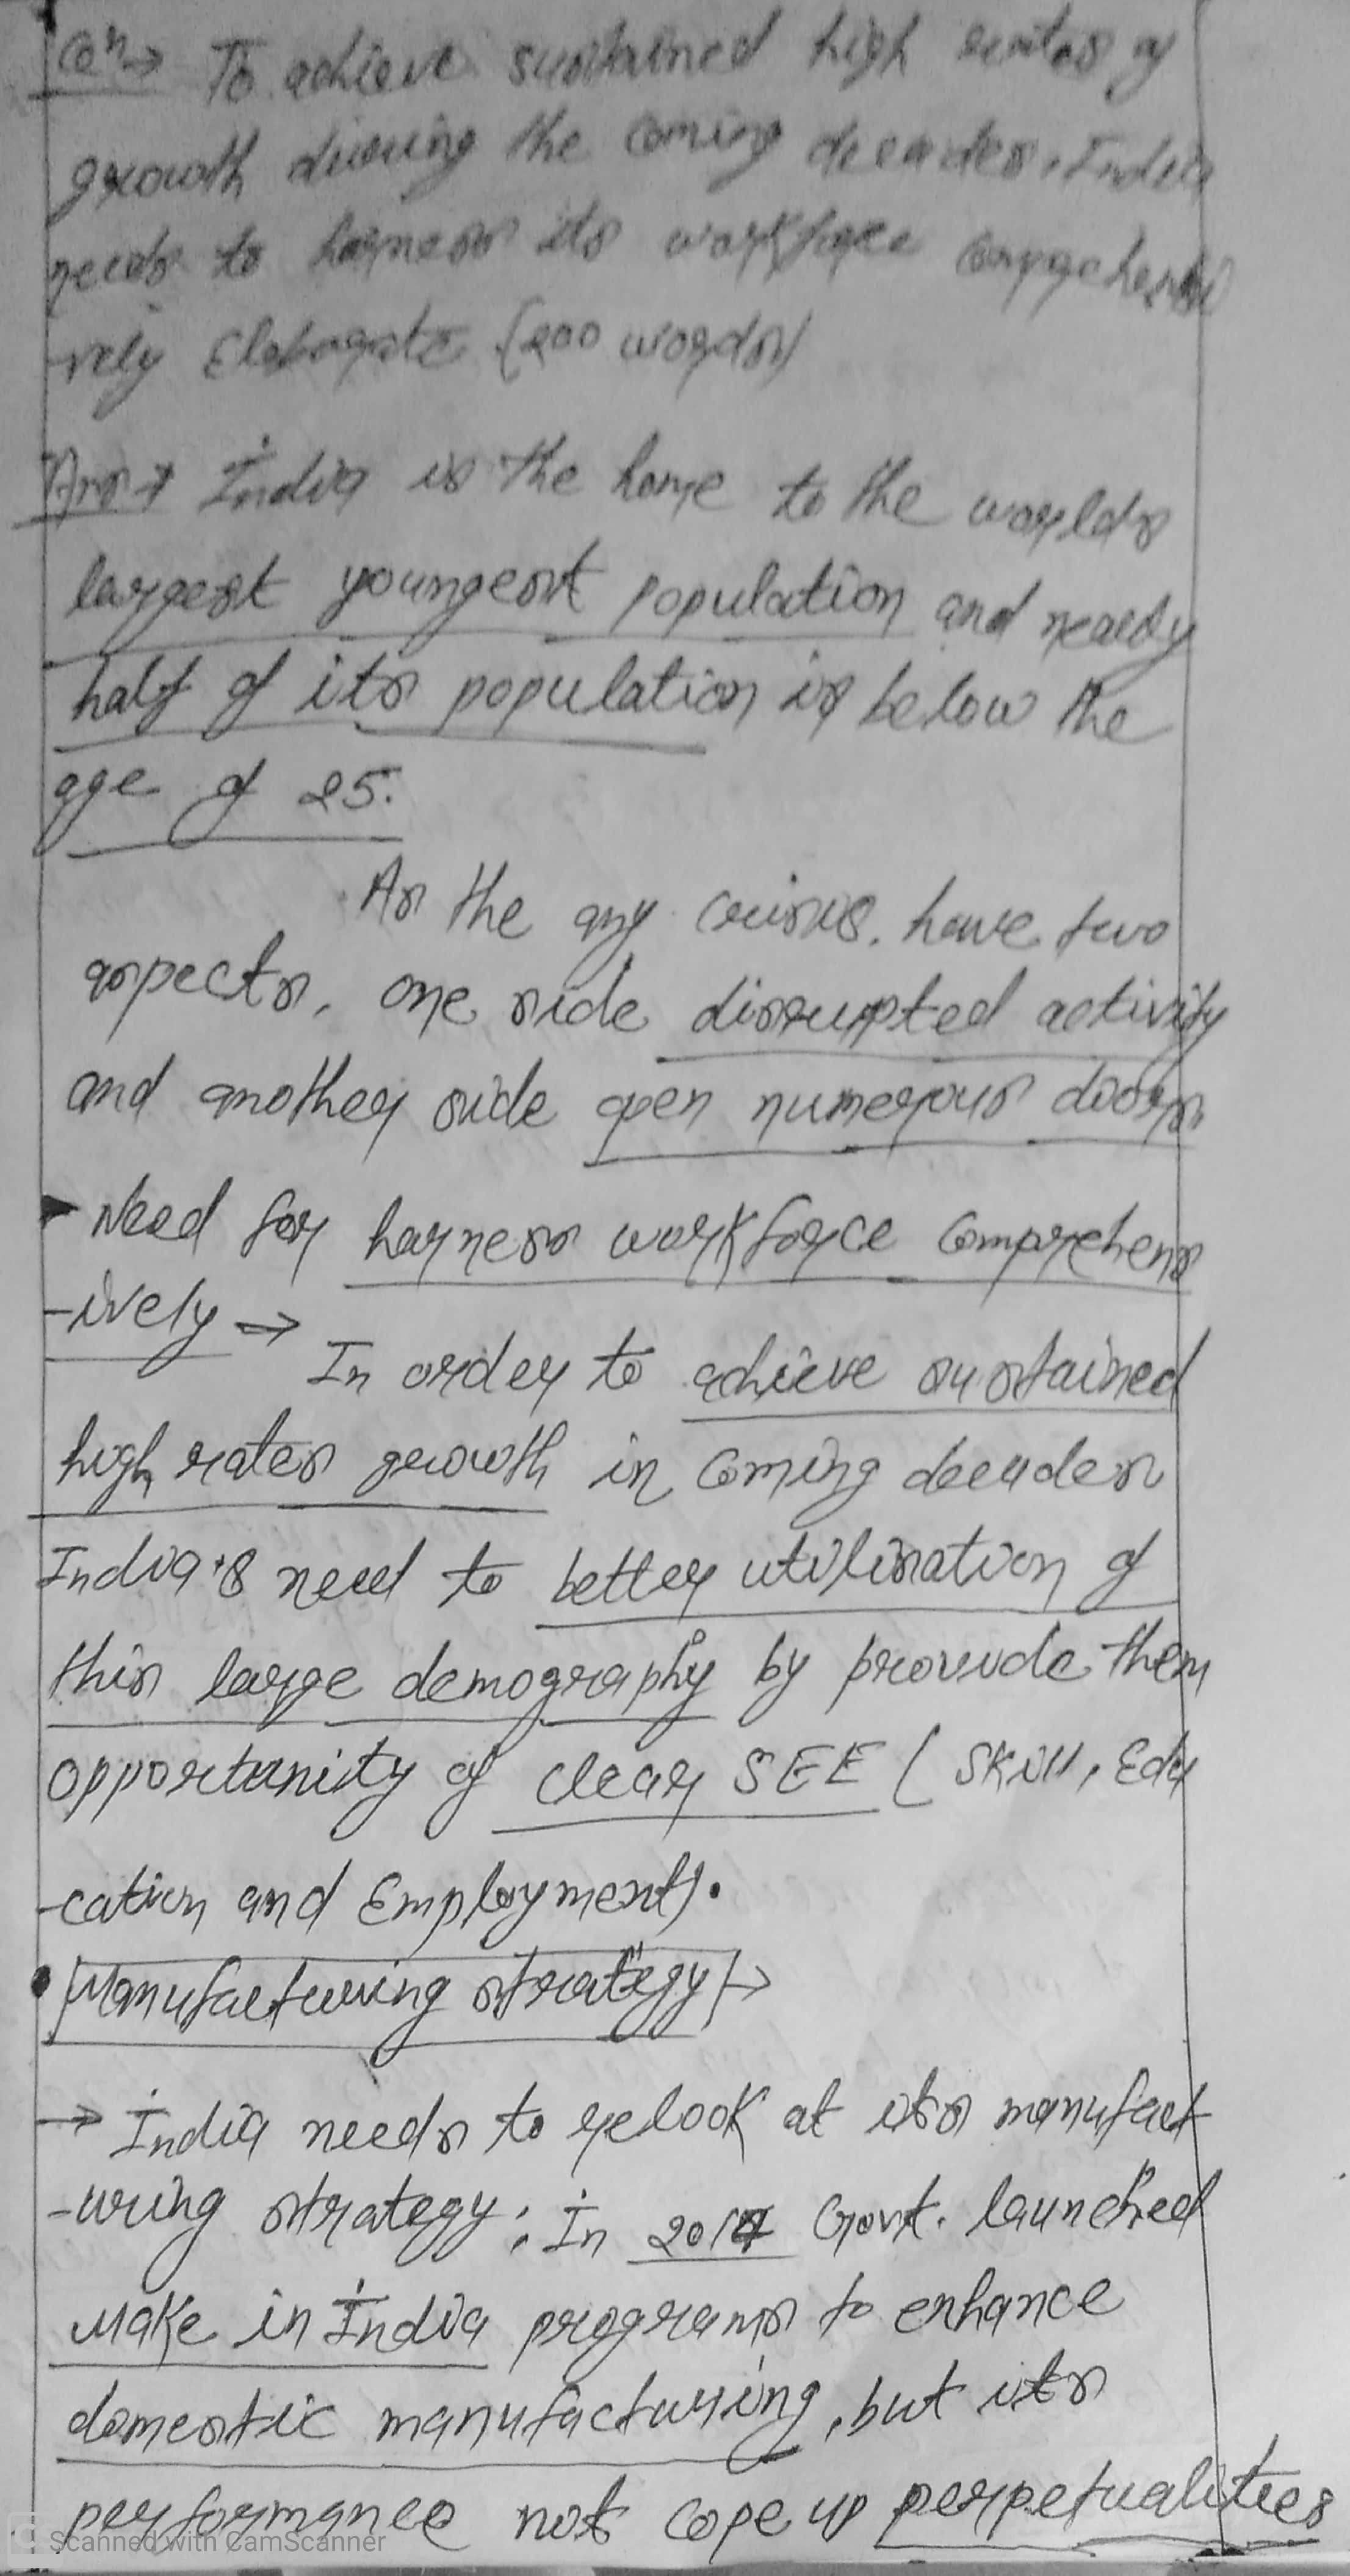 Qn→ To achieve sustained high rates of
growth during the coming decades, India
needs to harness its workforce comprehensi
-vely Elaborate (200 words)
Ans→ India is the home to the worlds
largest youngest population and nearly
half of its population is below the
age of 25.
As the any crisis, have two
aspects, one side disrupted activity
and another side open numerous doors
Need for harness workforce comprehens
-ively →
In order to achieve sustained
high rates growth in coming decades
India's need to better utilisation of
this large demography by provide them
opportunity of clear SEE (Skill, Edu
-cation and Employment).
• Manufacturing strategy →
→ India needs to relook at its manufact
-uring strategy; In 2014 Govt. launched
Make in India programs to enhance
domestic manufacturing, but its
performance not cope up perpetualities
Scanned with CamScanner